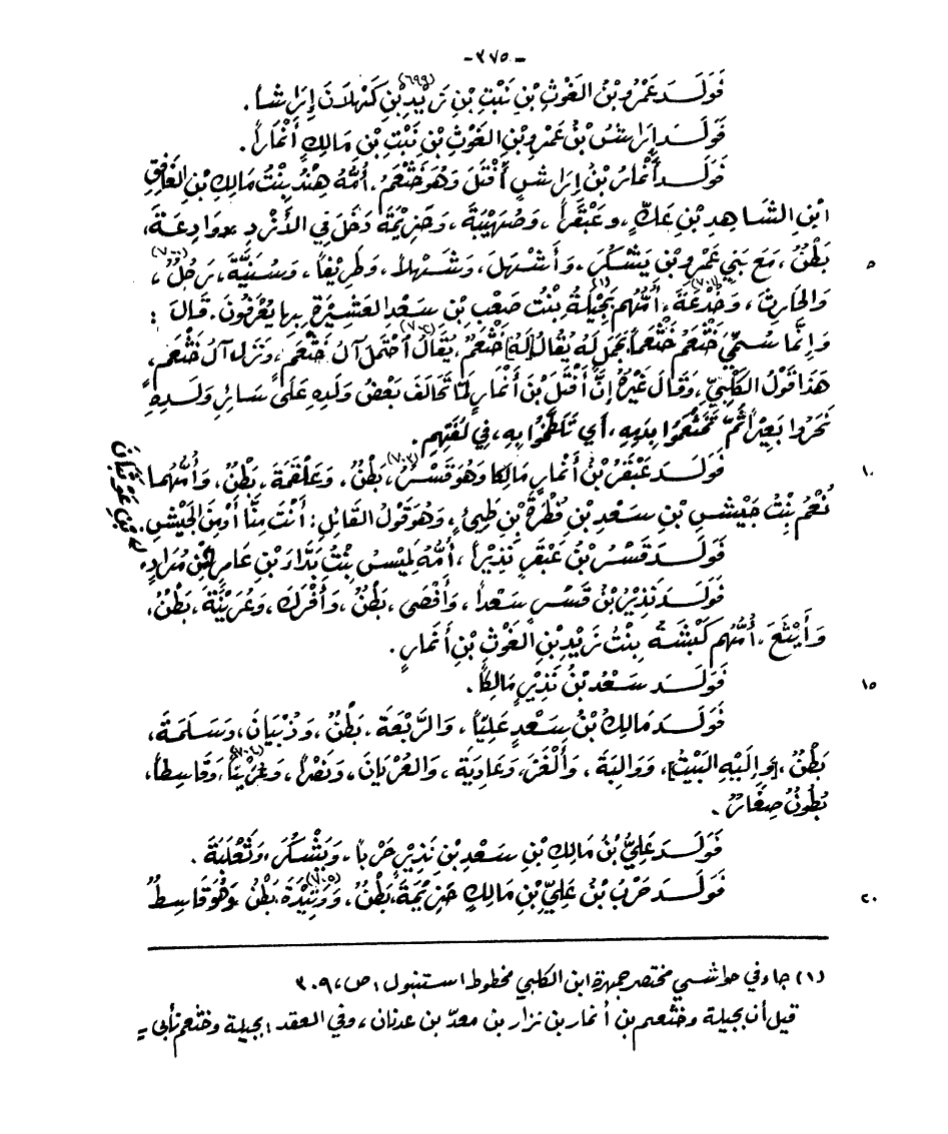 -٣٧٥-
فَوَلَـدَ عَمْرُو بْنُ الغَوْثِ بْنِ نَبْتِ بْنِ زَيْدِ (٦٩٩) بْنِ كَهْلَانَ إِرَاشاً.
فَوَلَـدَ إِرَاشُ بْنُ عَمْرِو بْنِ الغَوْثِ بْنِ نَبْتِ بْنِ مَالِكٍ أَنْمَاراً.
فَوَلَـدَ أَنْمَارُ بْنُ إِرَاشٍ أَفْتَلَ وَهُوَ خَثْعَمُ، أُمُّهُ هِنْدُ بِنْتُ مَالِكِ بْنِ الغَافِقِ
ابْنِ الشَّاهِدِ بْنِ عَكٍّ، وَعَبْقَراً، وَصُهَيْبَةَ، وَخُزَيْمَةَ دَخَلَ فِي الأَزْدِ، وَوَادِعَةَ،
بَطْنٌ، مَعَ بَنِي عَمْرِو بْنِ يَشْكُرَ، وَأَشْهَلَ، وَشَهْلاً، وَطَرِيفاً، وَسُنَيَّةَ (٧٠٠)، رَجُلٌ، ٥
وَالحَارِثَ، وَخُدْعَةَ (٧٠١)، أُمُّهُم بَجِيْلَةُ (١) بِنْتُ صَعْبِ بْنِ سَعْدِ العَشِيْرَةِ بِهَا يُعْرَفُونَ. قَالَ:
وَإِنَّمَا سُمِّيَ خَثْعَمُ خَثْعَماً بِجَمَلٍ لَهُ يُقَالُ [لَهُ] خَثْعَمُ (٧٠٢)، يُقَالُ احْتَمَلَ آلُ خَثْعَمٍ، وَنَزَلَ آلُ خَثْعَمٍ،
هَذَا قَوْلُ الكَلْبِيِّ، وَقَالَ غَيْرُهُ إِنَّ أَفْتَلَ بْنَ أَنْمَارٍ لَمَّا تَحَالَفَ بَعْضُ وَلَدِهِ عَلَى سَائِرِ وَلَـدِهِ
نَحَرُوا بَعِيْراً ثُمَّ تَخَثْعَمُوا بِدَمِهِ، أَي تَلَطَّخُوا بِهِ، فِي لُغَتِهِم.
فَوَلَـدَ عَبْقَرُ بْنُ أَنْمَارٍ مَالِكاً وَهُوَ قَسْرٌ (٧٠٣)، بَطْنٌ، وَعَلْقَمَةَ، بَطْنٌ، وَأُمُّهُمَا ١٠
نُعْمُ بِنْتُ جَيْشِ بْنِ سَعْدِ بْنِ فُطْرَةَ بْنِ طَيِّئٍ، وَهُوَ قَوْلُ القَائِلِ: أَنْتَ مِنَّا أَوْ مِنَ الجَيْشِ.
فَوَلَـدَ قَسْرُ بْنُ عَبْقَرٍ نَذِيْراً، أُمُّهُ لَمِيْسُ بِنْتُ بَدَّاءَ بْنِ عَامِرِ مِنْ مُرَادٍ،
فَوَلَـدَ نَذِيْرُ بْنُ قَسْرٍ سَعْداً، وَأَفْصَى، بَطْنٌ، وَأَفْرَكَ، وَعُرَيْنَةَ، بَطْنٌ،
وَأَيْثَعَ، أُمُّهُم كَبْشَةُ بِنْتُ زَيْدِ بْنِ الغَوْثِ بْنِ أَنْمَارٍ.
فَوَلَـدَ سَعْدُ بْنُ نَذِيْرٍ مَالِكاً. ١٥
فَوَلَـدَ مَالِكُ بْنُ سَعْدٍ عَلِيّاً، وَالرَّبْعَةَ، بَطْنٌ، وَذُبْيَانَ، وَسَلَمَةَ،
بَطْنٌ، [وَإِلَيْهِ البَيْتُ]، وَوَالِبَةَ، وَأَلْغَزَ، وَعَادِيَةَ، وَالعُرْيَانَ، وَنَصْراً، وَعُرَيْناً (٧٠٤)، وَقَاسِطاً،
بُطُونٌ صِغَارٌ.
فَوَلَـدَ عَلِيُّ بْنُ مَالِكِ بْنِ سَعْدِ بْنِ نَذِيْرٍ حَرْباً، وَيَشْكُرَ، وَثَعْلَبَةَ.
فَوَلَـدَ حَرْبُ بْنُ عَلِيِّ بْنِ مَالِكٍ خُزَيْمَةَ، بَطْنٌ، وَوَتِيْدَةَ (٧٠٥)، بَطْنٌ، وَهُوَ قَاسِطٌ ٢٠
(١) جاء في حواشي مختصر جمهرة ابن الكلبي مخطوط استنبول، ص، ٣٠٩
قيل أن بجيلة وخثعم بن أنمار بن نزار بن معدّ بن عدنان، وفي العقد: بجيلة وخثعم أبى =